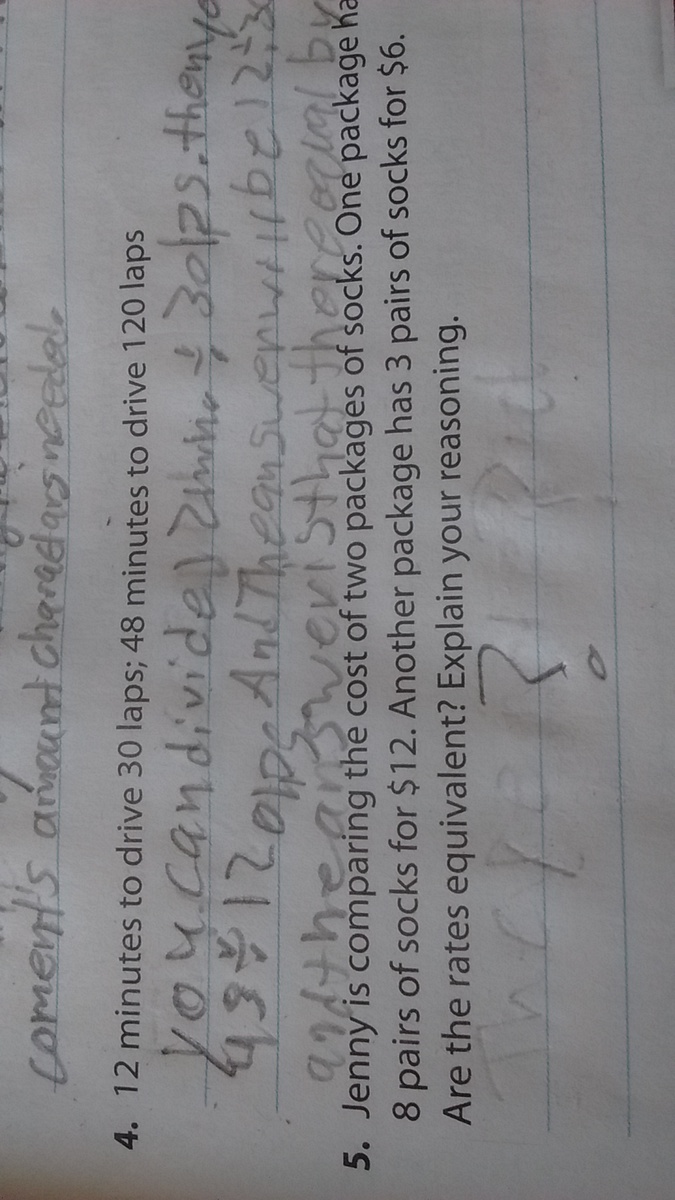 coment's amount charactars needed.
4. 12 minutes to drive 30 laps; 48 minutes to drive 120 laps
You can divide 12 min ÷ 30 lps. then yo
48 ÷ 120 lps. And The answer will be 12 ÷ 30
and the answer is that there equal by
5. Jenny is comparing the cost of two packages of socks. One package ha
8 pairs of socks for $12. Another package has 3 pairs of socks for $6.
Are the rates equivalent? Explain your reasoning.
?